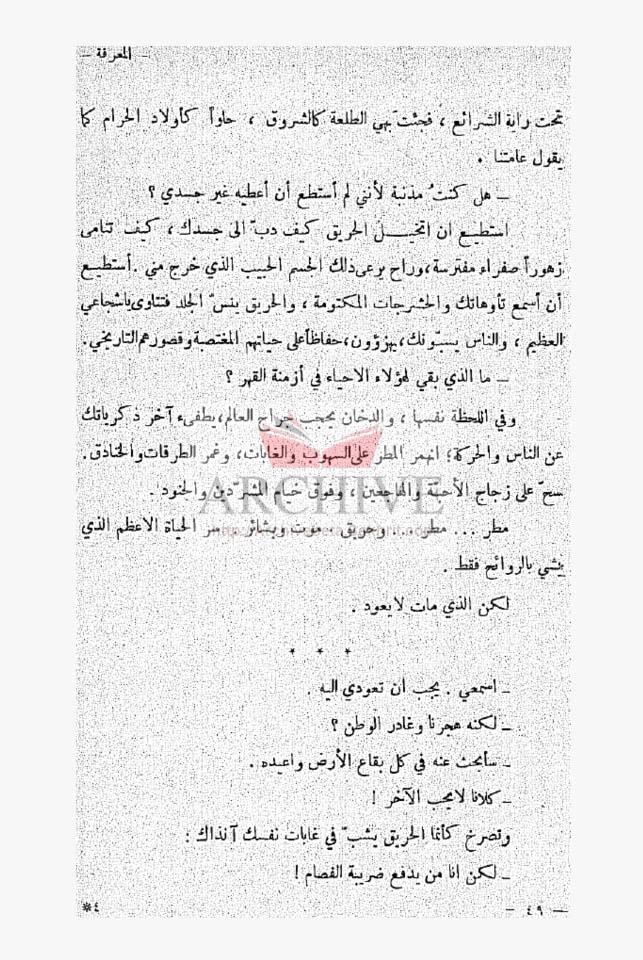 — المعرفة —
تحت راية الشرائع ، فجئتَ بهي الطلعة كالشروق ، حلواً كأولاد الحرام كما
يقول عامتنا .
ــ هل كنتُ مذنبة لأنني لم أستطع أن أعطيه غير جسدي ؟
استطيع ان اتخيل الحريق كيف دبّ الى جسدك ، كيف تنامى
زهوراً صفراء مفترسة، وراح يرعى ذلك الجسم الحبيب الذي خرج مني . أستطيع
أن أسمع تأوهاتك والحشرجات المكتومة ، والحريق ينسّ الجلد فتتلوى ياشجاعي
العظيم ، والناس يسبّونك، يهزؤون، حفاظاً على حياتهم المغتصبة وقصورهم التاريخي.
ــ ما الذي بقي لهؤلاء الاحياء في أزمنة القهر ؟
وفي اللحظة نفسها ، والدخان يحجب جراح العالم، يطفىء آخر ذكرياتك
عن الناس والحركة؛ انهمر المطر على السهوب والغابات، وغمر الطرقات والخنادق.
سحّ على زجاج الأحبّة والهاجعين ، وفوق خيام المشرّدين والجنود .
مطر ... مطر ... وحريق . موت وبشائر . سر الحياة الاعظم الذي
يشي بالروائح فقط .
لكن الذي مات لايعود .
* * *
ــ اسمعي . يجب ان تعودي اليه .
ــ لكنه هجرنا وغادر الوطن ؟
ــ سأبحث عنه في كل بقاع الأرض واعيده .
ــ كلانا لايحب الآخر !
وتصرخ كأنما الحريق يشبّ في غابات نفسك آنذاك :
ــ لكن انا من يدفع ضريبة الفصام !
— ٤٩ — ٤*
ARCHIVE